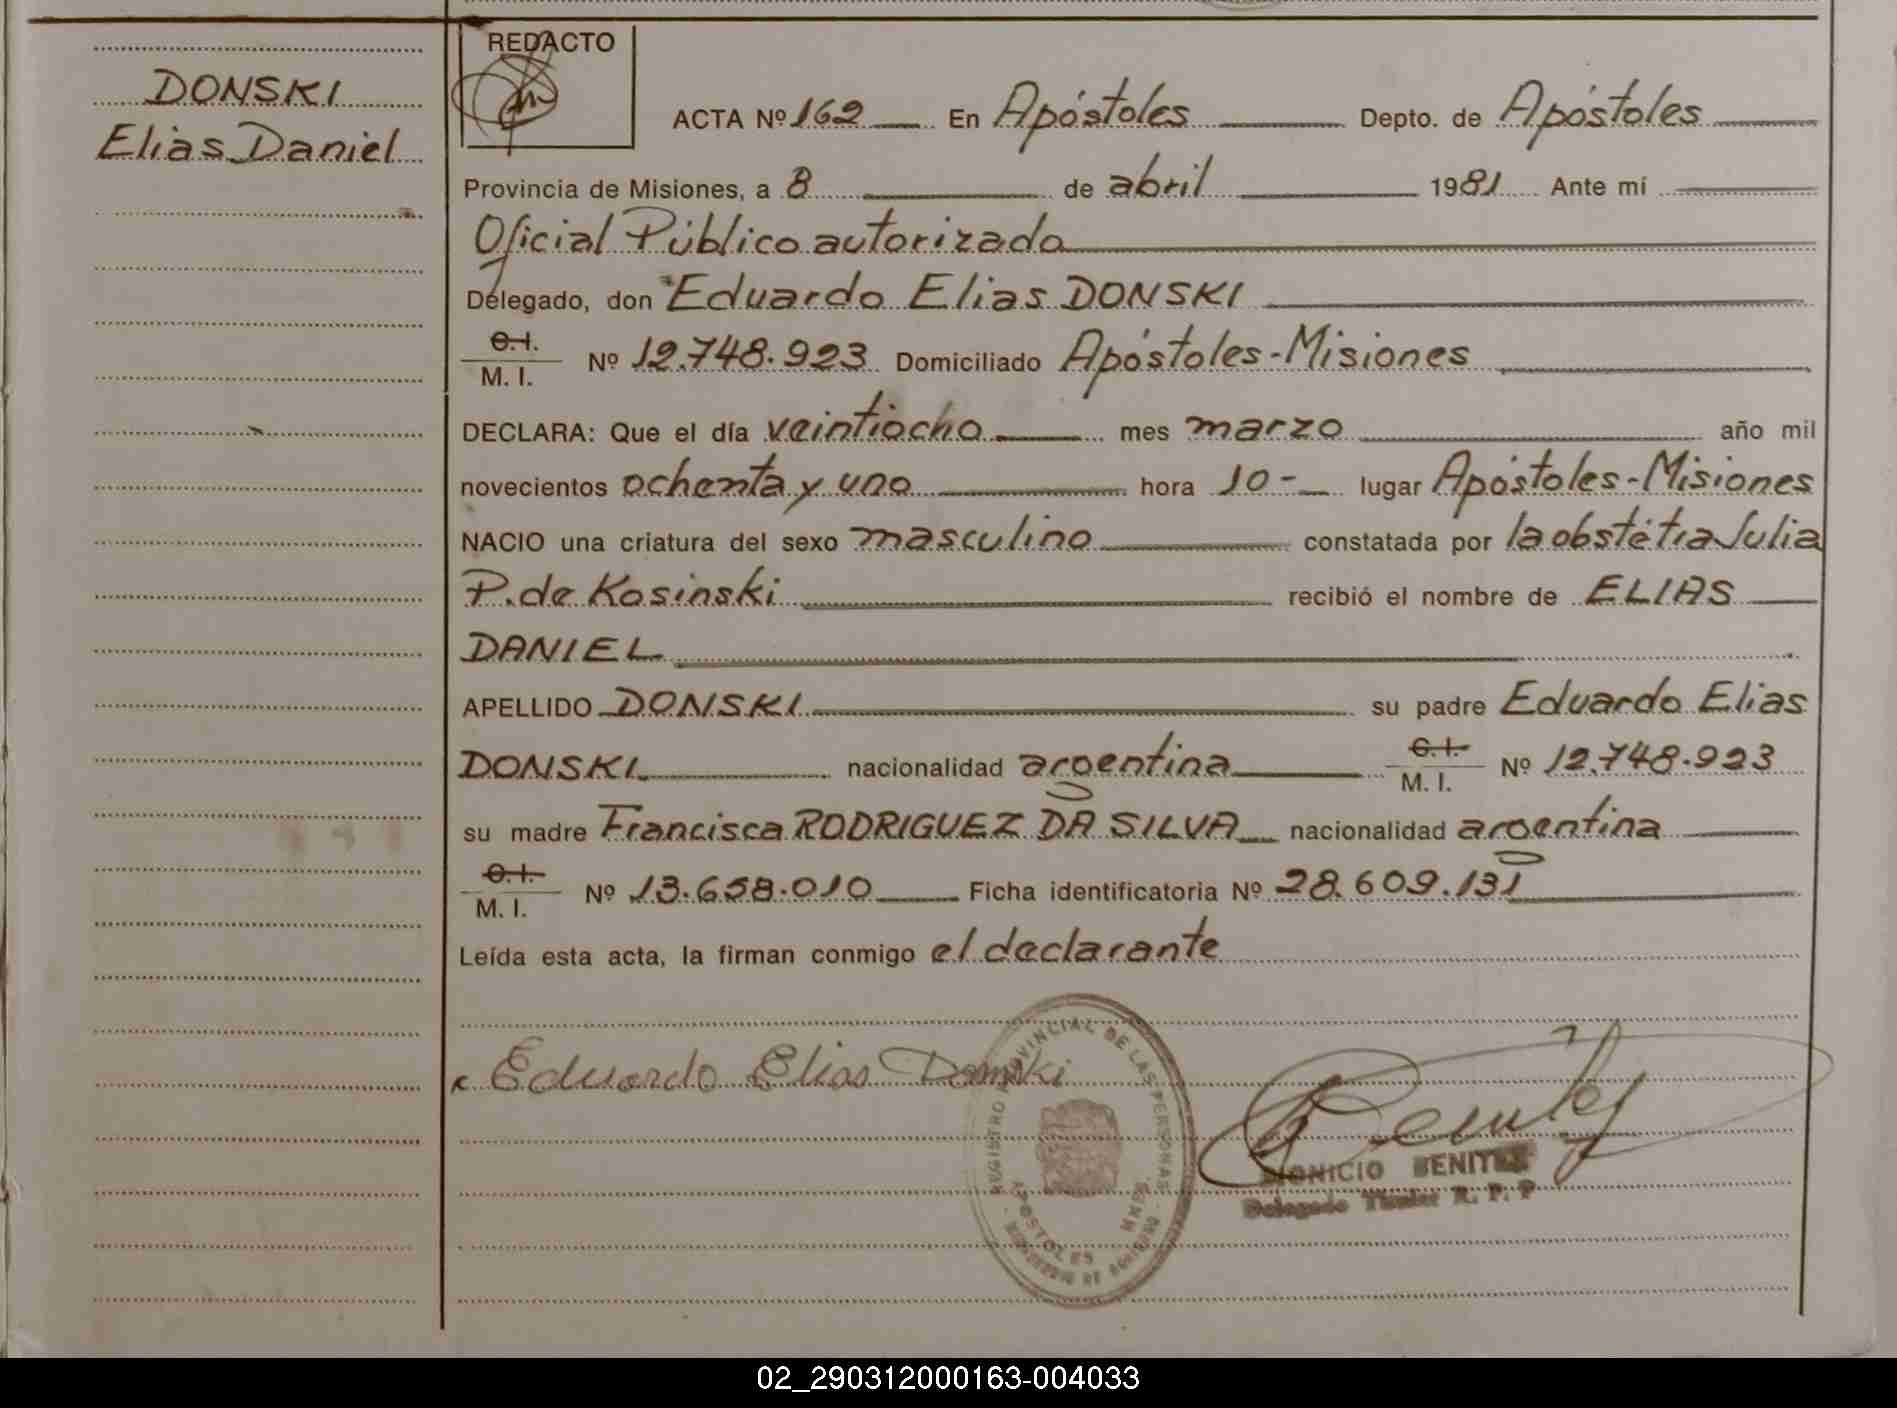 DONSKI
Elias Daniel
REDACTO
ACTA Nº 162 En Apóstoles Depto. de Apóstoles
Provincia de Misiones, a 8 de abril 1981 Ante mí
Oficial Público autorizado
Delegado, don Eduardo Elias DONSKI
C.I.
M. I. Nº 12.748.923 Domiciliado Apóstoles-Misiones
DECLARA: Que el día veintiocho mes marzo año mil
novecientos ochenta y uno hora 10- lugar Apóstoles-Misiones
NACIO una criatura del sexo masculino constatada por la obstétra Julia
P. de Kosinski recibió el nombre de ELIAS
DANIEL
APELLIDO DONSKI su padre Eduardo Elias
DONSKI nacionalidad argentina C.I. M. I. Nº 12.748.923
su madre Francisca RODRIGUEZ DA SILVA nacionalidad argentina
C.I.
M. I. Nº 13.658.010 Ficha identificatoria Nº 28.609.131
Leída esta acta, la firman conmigo el declarante
Eduardo Elias Donski
PROVINCIAL DE LAS PERSONAS
APOSTOLES
Benitez
DIONICIO BENITEZ
Delegado Titular R. P. P
02_290312000163-004033